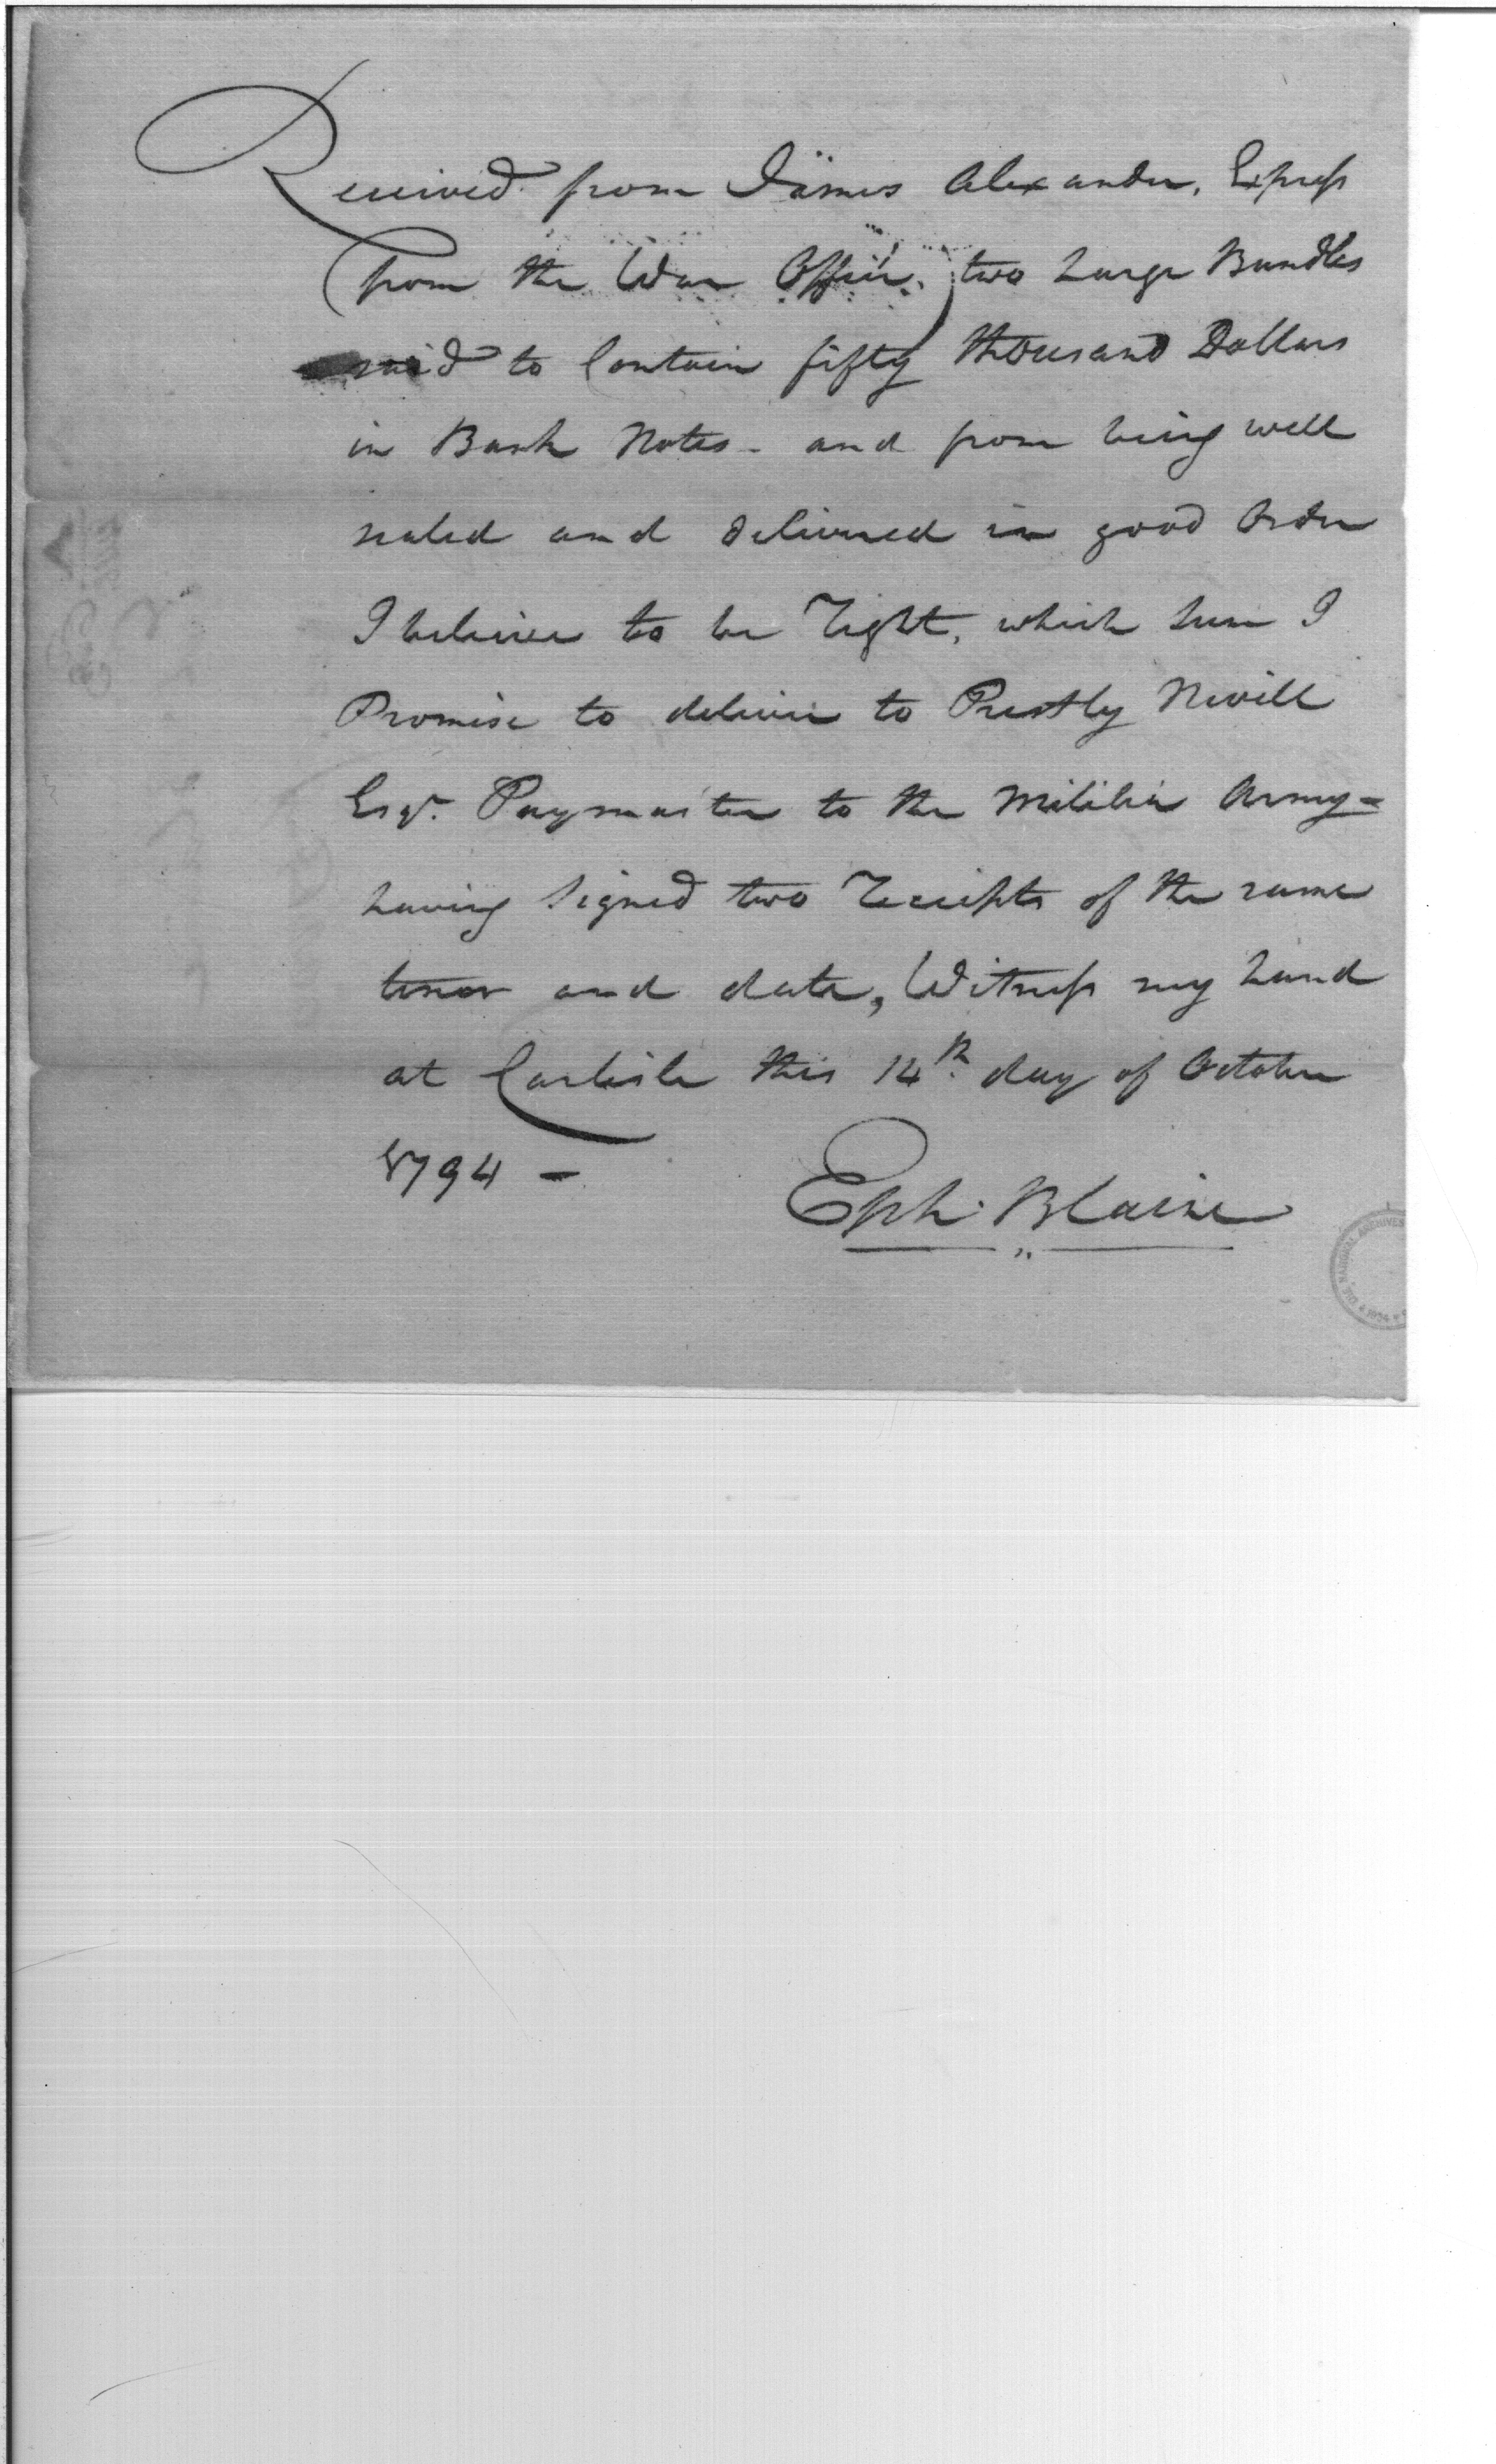 Received from James Alexander, Express
from the War Office, two Large Bundles
said to Contain fifty thousand Dollars
in Bank Notes - and from being well
sealed and delivered in good Order
I believe to be Right, which Sum I
Promise to deliver to Prestly Nevill
Esqr. Paymaster to the Militia Army -
having Signed two Receipts of the same
tenor and date, Witness my hand
at Carlisle this 14th day of October
1794 -
Eph. Blaine
THE NATIONAL ARCHIVES
1934